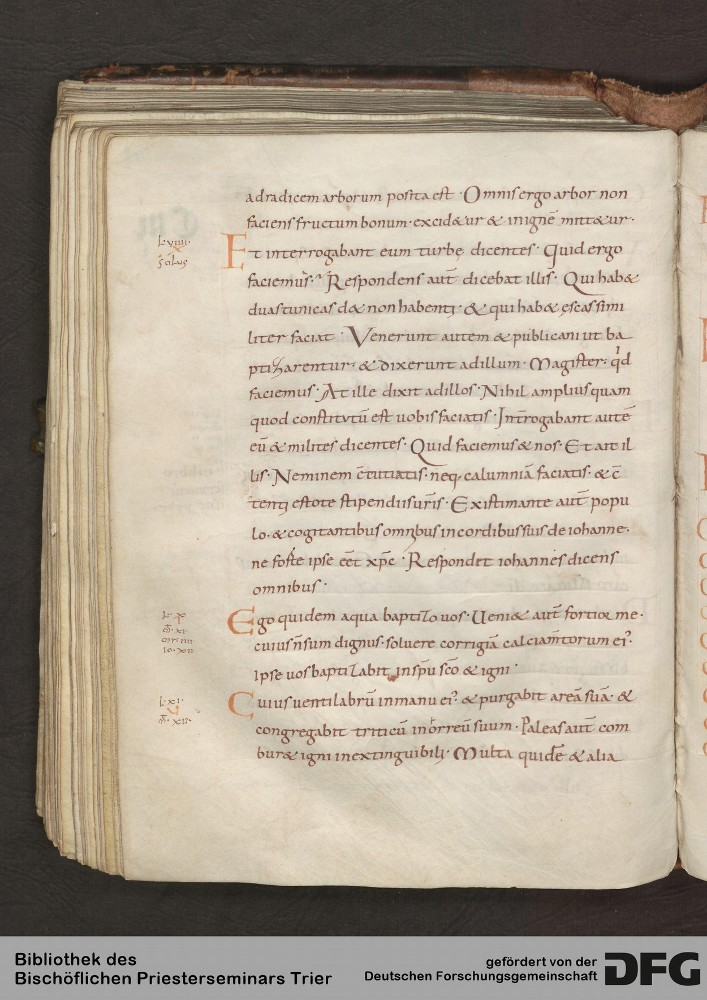 ad radicem arborum posita est · Omnis ergo arbor non
faciens fructum bonum · excid&ur & in igne mitt&ur ·
Et interrogabant eum turbę dicentes · Quid ergo
faciemus · Respondens aut̄ dicebat illis · Qui hab&
duas tunicas d& non habenti · & qui hab& ęscas simi
liter faciat · Venerunt autem & publicani ut ba
ptizarentur · & dixerunt ad illum · Magister · qd
faciemus · At ille dixit ad illos · Nihil amplius quam
quod constitutū est uobis faciatis · Int̄rogabant autē
eū & milites dicentes · Quid faciemus & nos · Et ait il
lis · Neminem c̄cutiatis · neq· calumniā faciatis · & c̄
tenti estote stipendiis ur̄is · Existimante aut̄ popu
lo · & cogitantibus omnibus in cordibus suis de iohanne ·
ne forte ipse eēt xp̄c · Respondit iohannes dicens
omnibus ·
Ego quidem aqua baptizo uos · Ueni& aut̄ fortior me ·
cuius n̄ sum dignus · soluere corrigiā calciam̄torum ei' ·
Ipse uos baptizabit in sp̄u sc̄o & igni ·
Cuius uentilabrū in manu ei' · & purgabit areā suā · &
congregabit triticū in horreū suum · Paleas aut̄ com
bur& igni inextinguibili · Multa quidē & alia
L· VIIII·
L· X·
L· XI·
Bibliothek des
Bischöflichen Priesterseminars Trier
gefördert von der
Deutschen Forschungsgemeinschaft
DFG